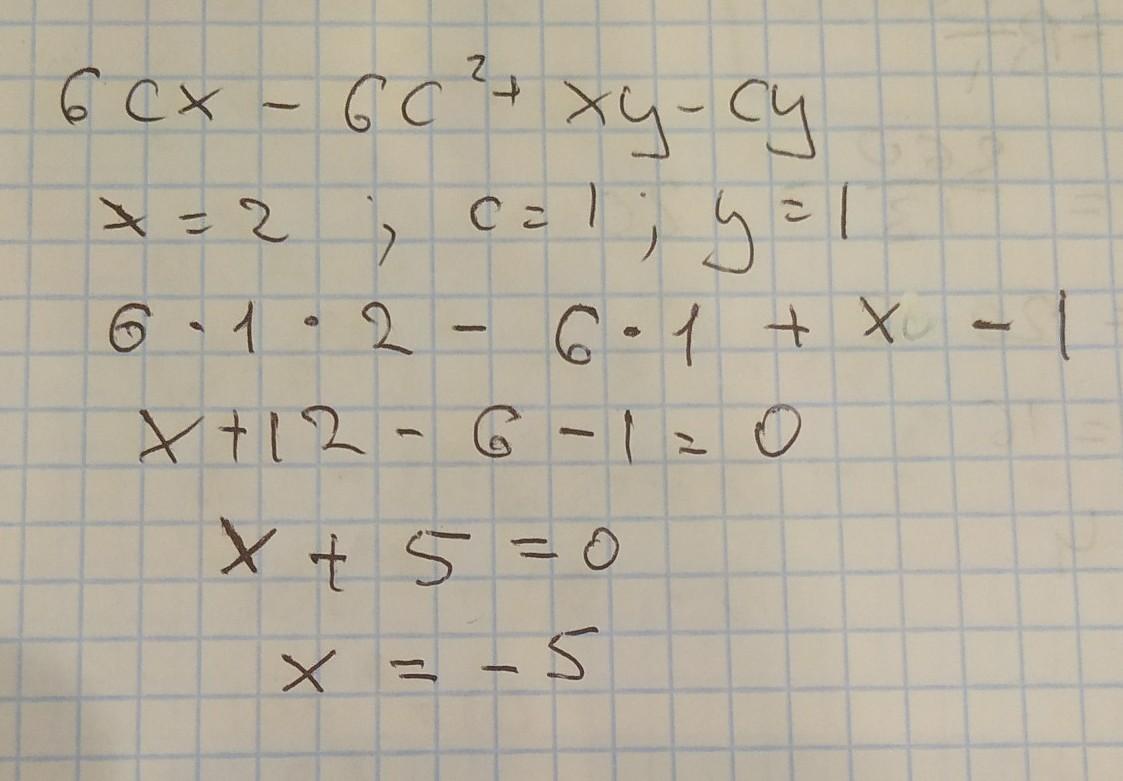 6cx - 6c² + xy - cy
x = 2 ; c = 1 ; y = 1
6 · 1 · 2 - 6 · 1 + x - 1
x + 12 - 6 - 1 = 0
x + 5 = 0
x = - 5